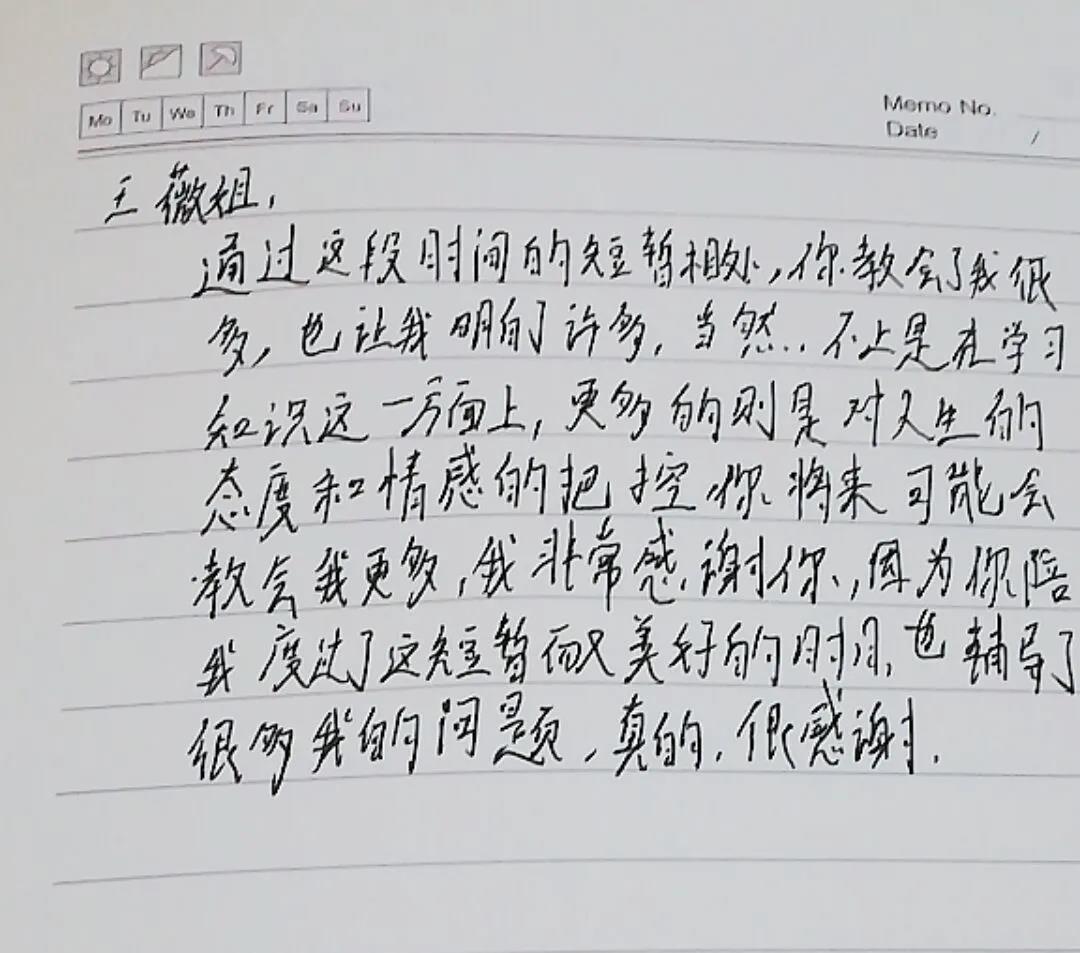 Mo Tu We Th Fr Sa Su
Memo No.
Date /
王薇姐,
通过这段时间的短暂相处,你教会了我很
多,也让我明白了许多,当然..不止是在学习
知识这一方面上,更多的则是对人生的
态度和情感的把控,你将来可能会
教会我更多,我非常感谢你,因为你陪
我度过了这短暂而又美好的时间,也辅导了
很多我的问题,真的,很感谢.